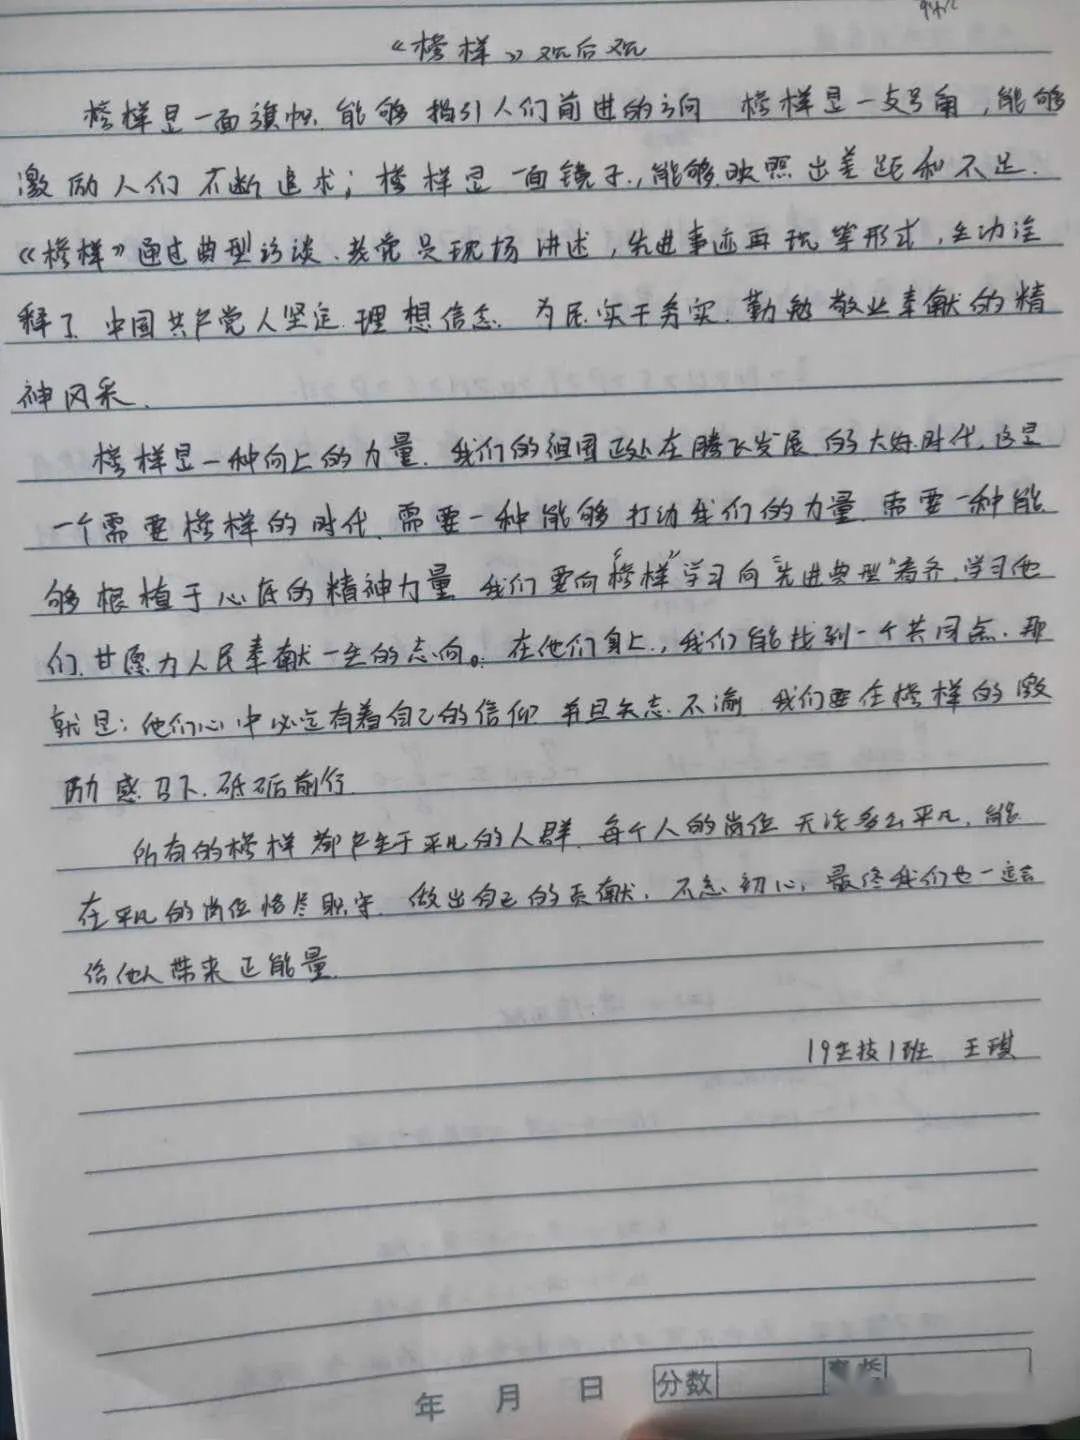 《榜样》观后观
榜样是一面旗帜、能够指引人们前进的方向 榜样是一支号角，能够
激励人们不断追求；榜样是一面镜子，能够映照出差距和不足.
《榜样》通过典型访谈、老党员现场讲述，先进事迹再现等形式，生动诠
释了中国共产党人坚定理想信念、为民实干务实、勤勉敬业奉献的精
神风采.
榜样是一种向上的力量. 我们的祖国正处在腾飞发展的大好时代. 这是
一个需要榜样的时代、需要一种能够打动我们的力量. 需要一种能
够根植于心底的精神力量 我们要向“榜样”学习向“先进典型”看齐. 学习他
们甘愿为人民奉献一生的志向。在他们身上，我们能找到一个共同点. 那
就是：他们心中必定有着自己的信仰 并且矢志不渝 我们要在榜样的激
励感召下. 砥砺前行
所有的榜样都产生于平凡的人群. 每个人的岗位无论多么平凡. 能
在平凡的岗位恪尽职守. 做出自己的贡献. 不忘初心，最终我们也一定会
给他人带来正能量.
19生技1班 王琪
年 月 日 分数